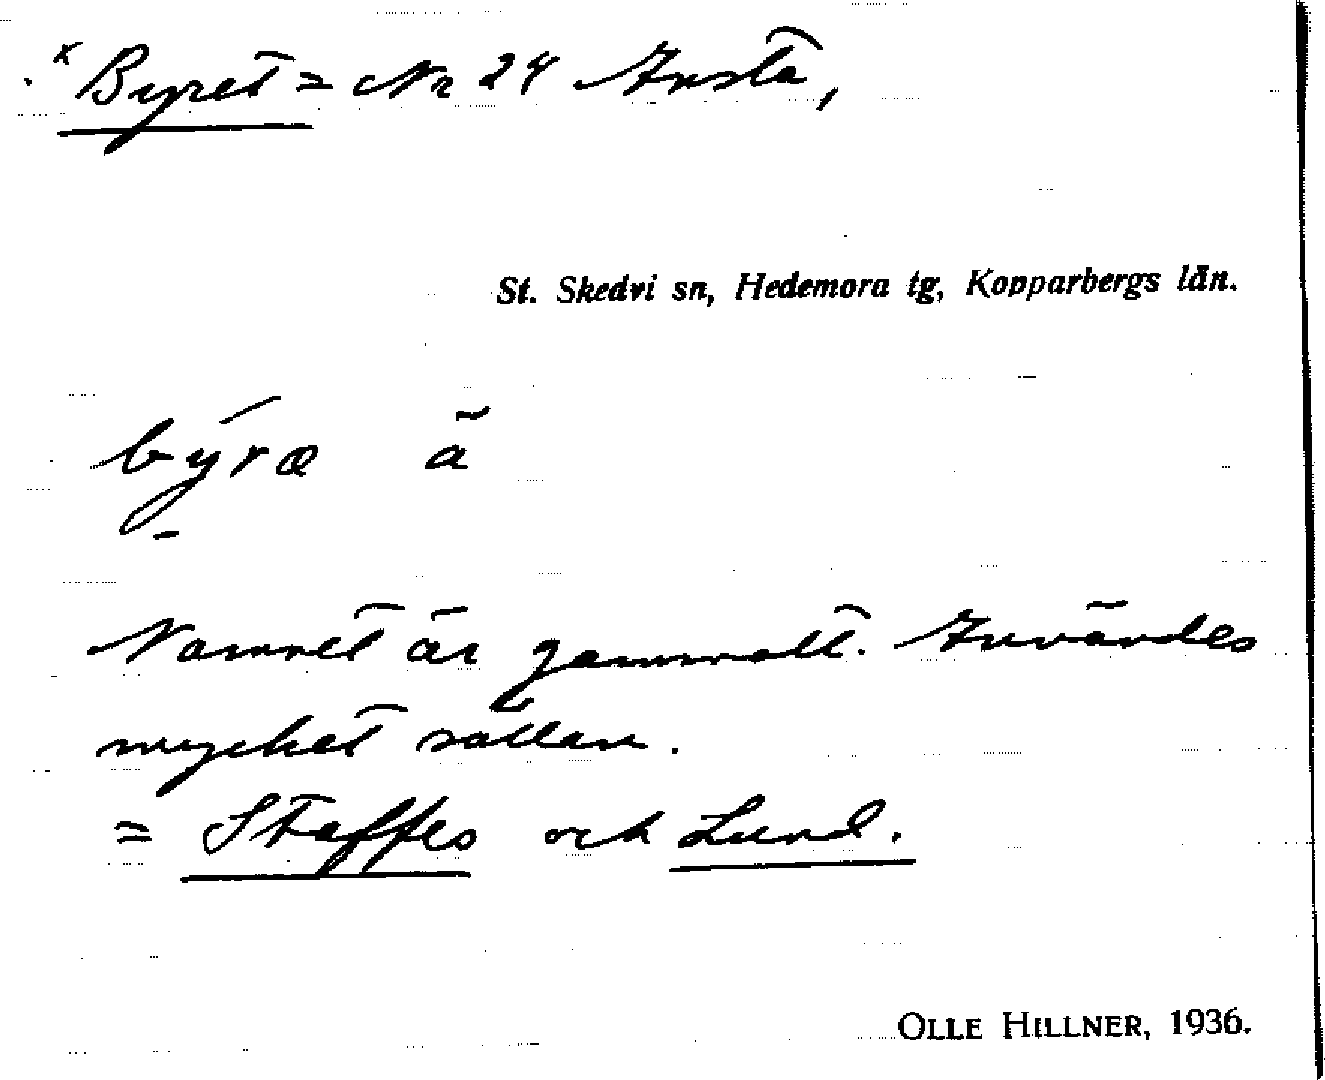 x Byret = Nr 24 Ansta,
St. Skedvi sn, Hedemora tg, Kopparbergs län.
býræ ã
Namnet är gammalt. Användes
mycket sällan.
= Staffes och Lund.
OLLE HILLNER, 1936.